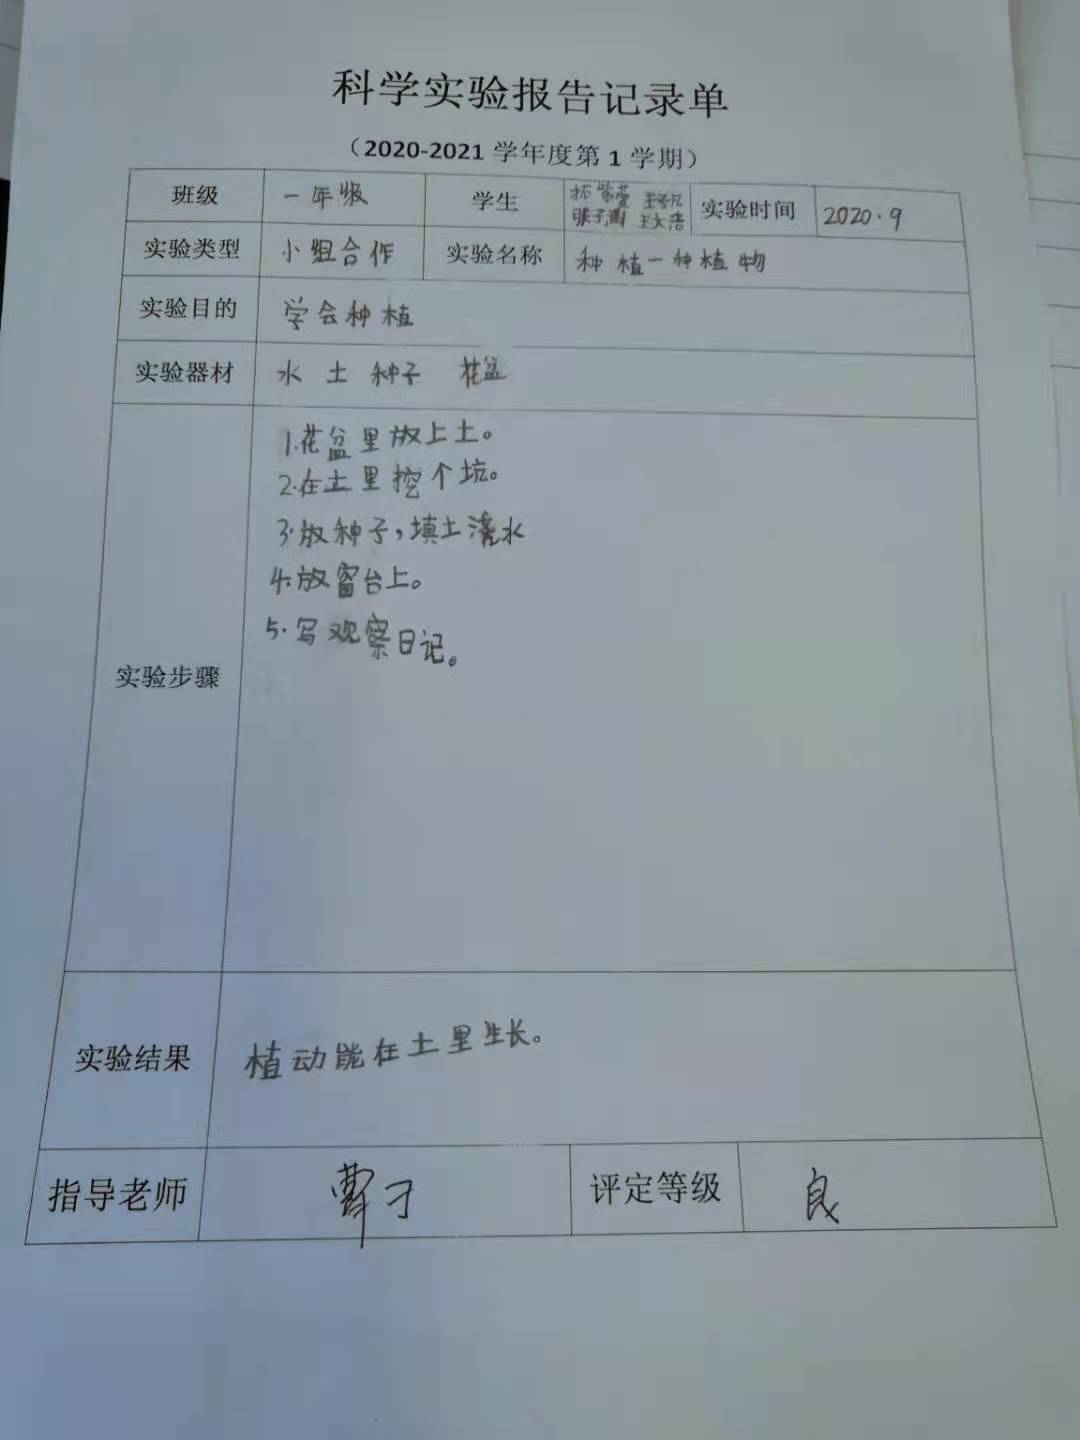 科学实验报告记录单
（2020-2021 学年度第 1 学期）
班级 一年级 学生 王文浩 实验时间 2020.9
实验类型 小组合作 实验名称 种植一种植物
实验目的 学会种植
实验器材 水 土 种子 花盆
实验步骤
1.花盆里放上土。
2.在土里挖个坑。
3.放种子，填土浇水
4.放窗台上。
5.写观察日记。
实验结果 植动能在土里生长。
指导老师 评定等级 良